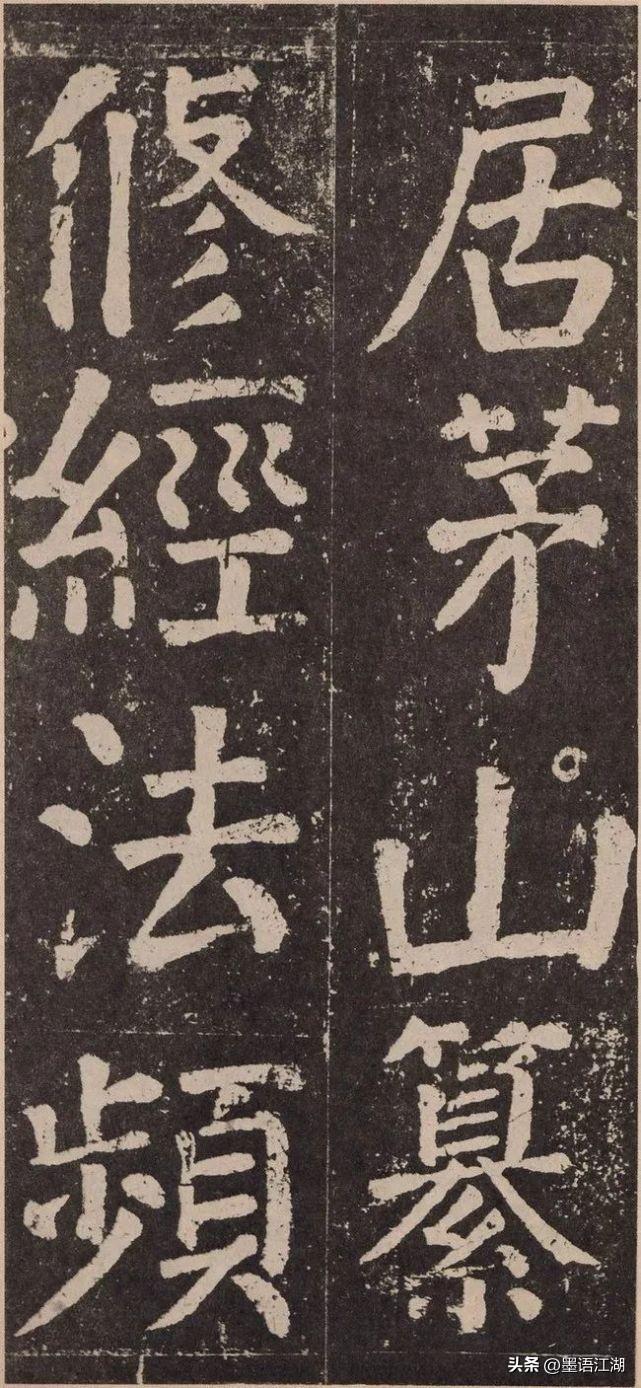 居茅山纂
修經法頻
头条 @墨语江湖